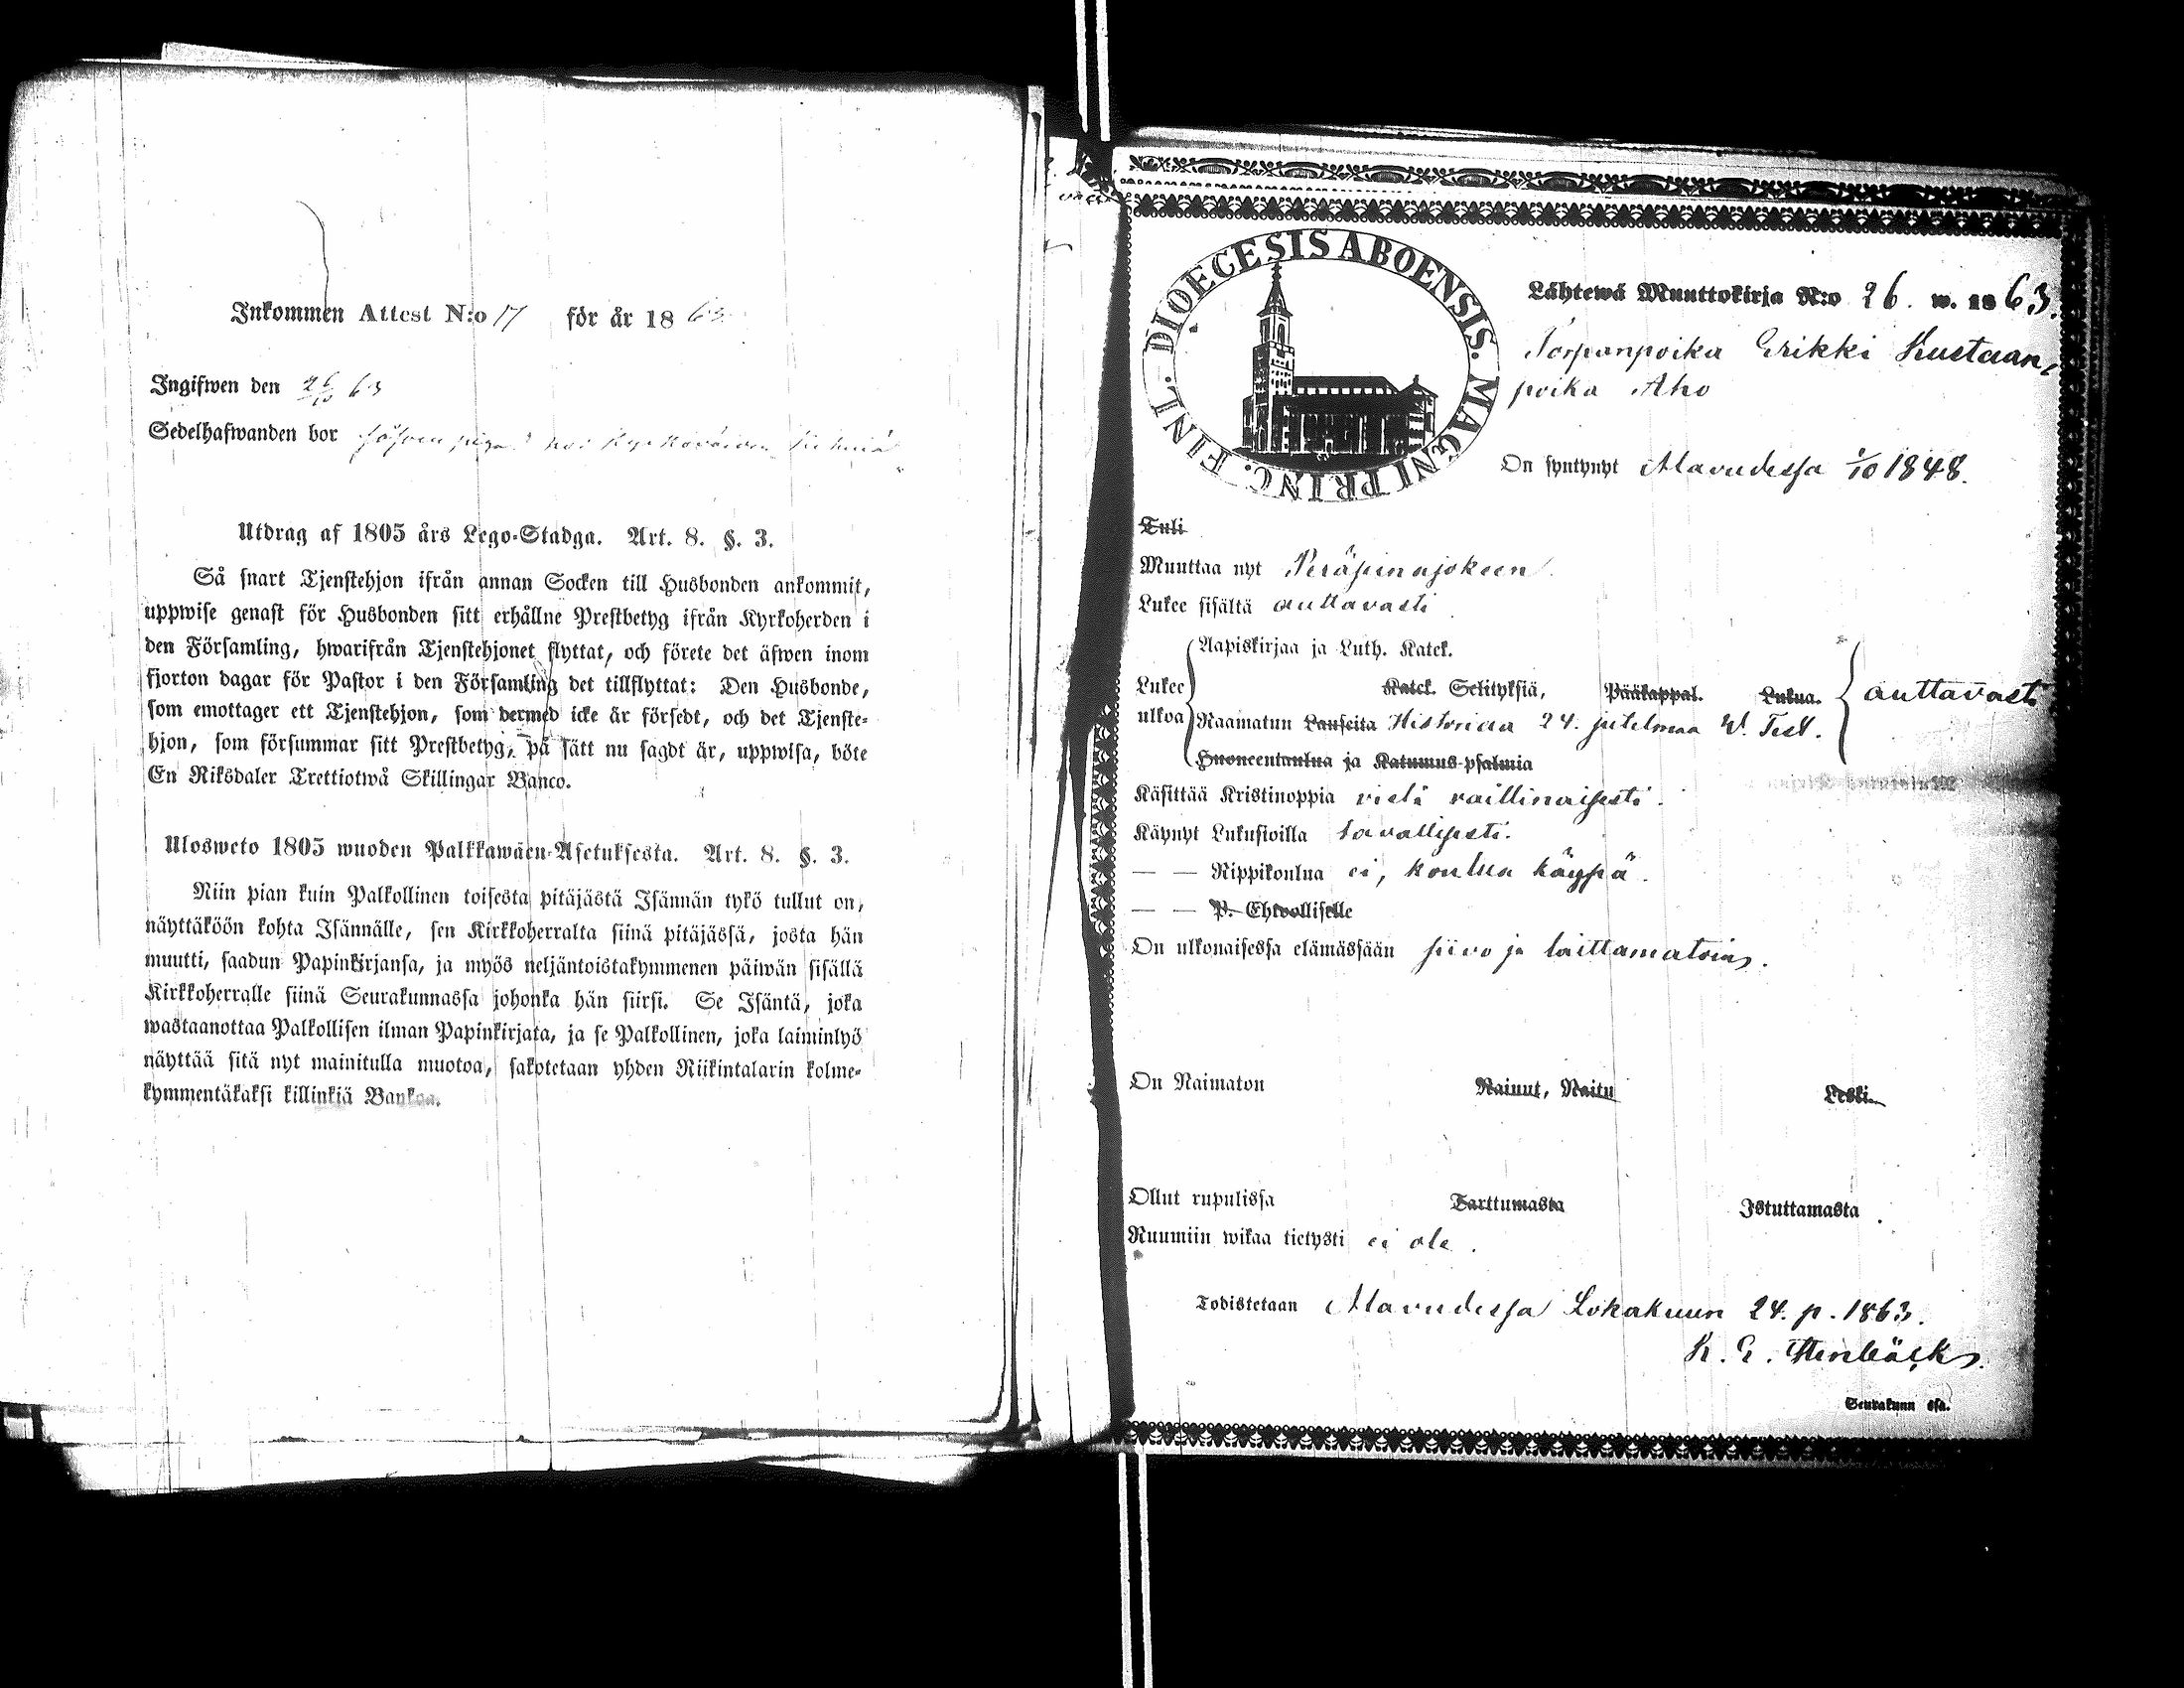 Inkommen Attest N:o 17 för år 1863
Ingifwen den 26/10 63
Sedelhafwanden bor
Utdrag af 1805 års Lego-Stadga. Art. 8. §. 3.
Så snart Tjenstehjon ifrån annan Socken till Husbonden ankommit,
uppwise genast för Husbonden sitt erhållne Prestbetyg ifrån Kyrkoherden i
den Församling, hwarifrån Tjenstehjonet flyttat, och förete det äfwen inom
fjorton dagar för Pastor i den Församling det tillflyttat: Den Husbonde,
som emottager ett Tjenstehjon, som dermed icke är försedt, och det Tjenste-
hjon, som försummar sitt Prestbetyg, på sätt nu sagdt är, uppwisa, böte
En Riksdaler Trettiotwå Skillingar Banco.
Ulosweto 1805 wuoden Palkkawäen-Asetuksesta. Art. 8. §. 3.
Niin pian kuin Palkollinen toisesta pitäjästä Isännän tykö tullut on,
näyttäköön kohta Isännälle, sen Kirkkoherralta siinä pitäjässä, josta hän
muutti, saadun Papinkirjansa, ja myös neljäntoistakymmenen päiwän sisällä
Kirkkoherralle siinä Seurakunnassa johonka hän siirsi. Se Isäntä, joka
wastaanottaa Palkollisen ilman Papinkirjata, ja se Palkollinen, joka laiminlyö
näyttää sitä nyt mainitulla muotoa, sakotetaan yhden Riikintalarin kolme-
kymmentäkaksi killinkiä Bankoa.
DIOECESIS ABOENSIS. MAGNI PRINC. FINL.
Lähtewä Muuttokirja N:o 26. w. 1863.
Torpanpoika Erikki Kustaan,
poika Aho
On syntynyt Alavudessa 1/10 1848.
Tuli
Muuttaa nyt Peräseinäjokeen
Lukee sisältä auttavasti
Aapiskirjaa ja Luth. Katek.
Lukee ulkoa Katek. Selityksiä, Pääkappal. Lukua. auttavasti
Raamatun Lauseita Historiaa 24. jutelmaa W. Test.
Huoneentaulua ja Katumus-psalmia
Käsittää Kristinoppia vielä vaillinaisesti.
Käynyt Lukusioilla tavallisesti.
— — Rippikoulua ei, koulua käypä.
— — P. Ehtoolliselle
On ulkonaisessa elämässään siivo ja laittamatoin.
On Naimaton Nainut, Naitu Leski
Ollut rupulissa Tarttumasta Istuttamasta
Ruumiin wikaa tietysti ei ole.
Todistetaan Alavudessa Lokakuun 24. p. 1863.
K. E. Stenbäck
Seurakunn ssa.